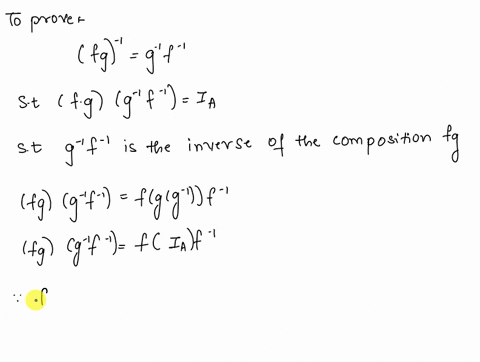 To prove:-
(fg)⁻¹ = g⁻¹f⁻¹
s.t (f.g) (g⁻¹f⁻¹) = I_A
s.t g⁻¹f⁻¹ is the inverse of the composition fg
(fg) (g⁻¹f⁻¹) = f(g(g⁻¹))f⁻¹
(fg) (g⁻¹f⁻¹) = f( I_A)f⁻¹
∵ f